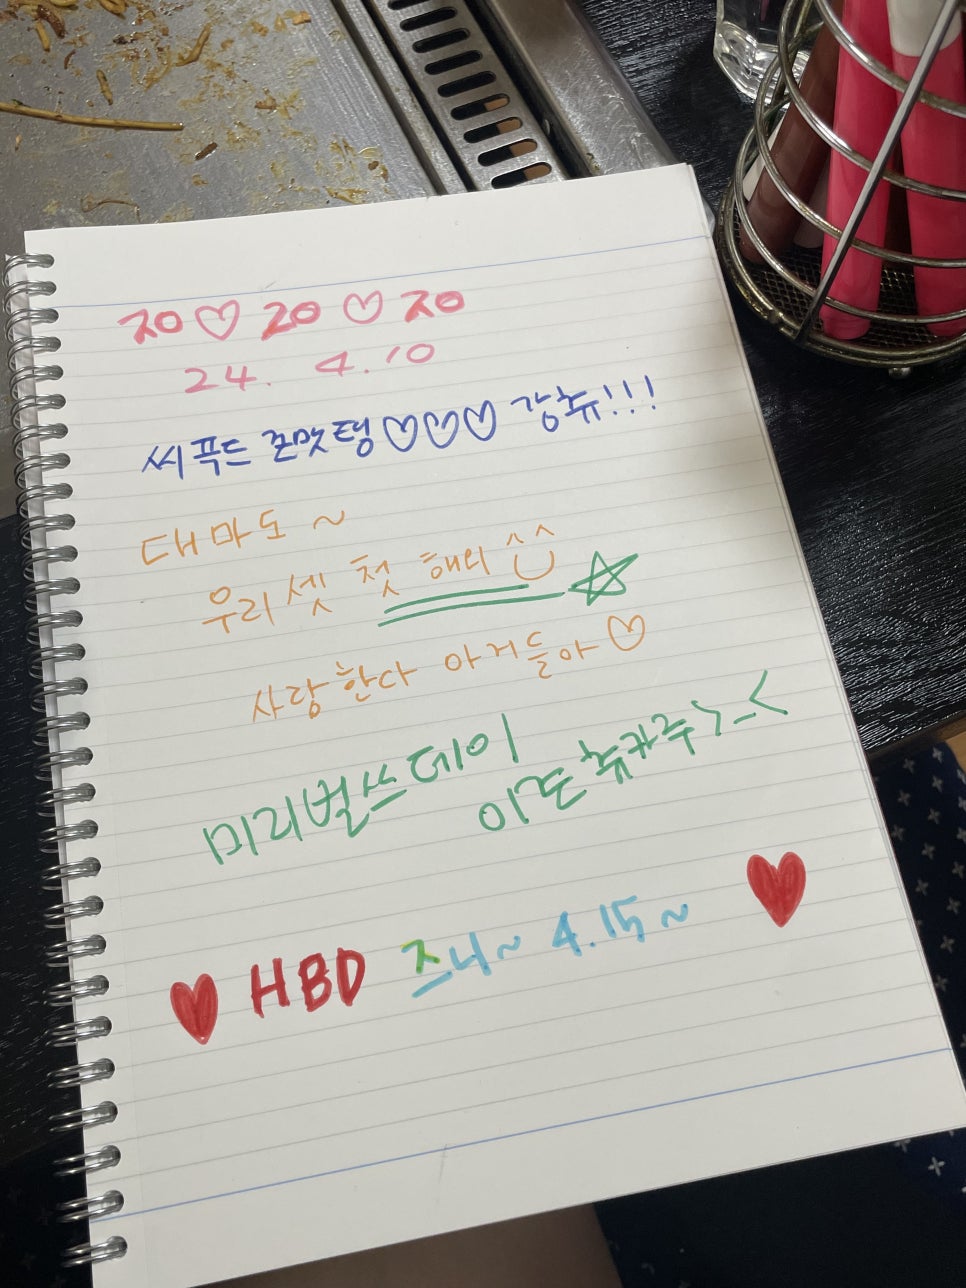 지o♡20♡지o
24. 4.10
씨푸드 존맛탱♡♡♡ 강츄!!!
대마도~
우리 셋 첫 해외 ^^
사랑한다 아거들아♡
미리벌쓰데이
이코 축카추>_<
HBD 즈니~ 4.15~